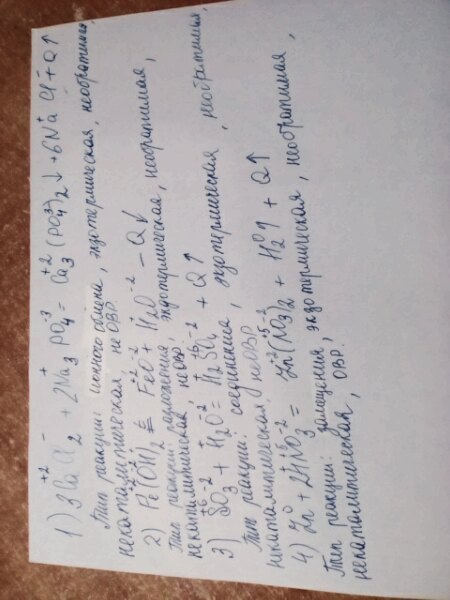 1) 3CaCl₂ + 2Na₃PO₄ = Ca₃(PO₄)₂↓ + 6NaCl + Q↑
Тип реакции: ионного обмена, экзотермическая, необратимая,
некаталитическая, не ОВР.
2) Fe(OH)₂ = FeO + H₂O - Q↓
Тип реакции: разложения, экзотермическая, необратимая,
некаталитическая, не ОВР.
3) SO₃ + H₂O = H₂SO₄ + Q↑
Тип реакции: соединения, экзотермическая, необратимая,
некаталитическая, не ОВР
4) Zn + 2HNO₃ = Zn(NO₃)₂ + H₂↑ + Q↑
Тип реакции: замещения, экзотермическая, необратимая,
некаталитическая, ОВР.